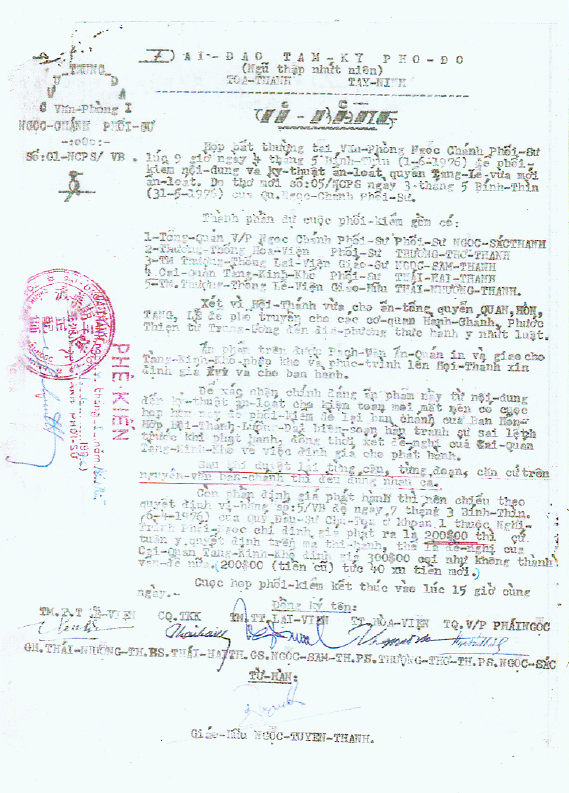 ĐẠI-ĐẠO TAM-KỲ PHỔ-ĐỘ
(Ngũ thập nhứt niên)
TÒA-THÁNH TÂY-NINH
Văn-Phòng I
NGỌC-CHÁNH PHỐI-SƯ
Số:01-NCPS/ VB
VI-BẰNG
Họp bất thường tại Văn-Phòng Ngọc Chánh Phối-Sư
lúc 9 giờ ngày 4 tháng 5 Bính-Thìn (1-6-1976) để phối-
kiểm nội-dung và kỹ-thuật ấn-loát quyển Tang-Lễ vừa mới
ấn-loát. Do thơ mời số:05/NCPS ngày 3 tháng 5 Bính-Thìn
(31-5-1976) của Qu.Ngọc-Chánh Phối-Sư.
Thành phần dự cuộc phối-kiểm gồm có:
1-Tổng-Quản V/P Ngọc Chánh Phối-Sư Phối-Sư NGỌC-SÁCTHANH
2-Thượng-Thống Hòa-Viện Phối-Sư THƯỢNG-THƠ-THANH
3-TM Thượng-Thống Lại-Viện Giáo-Sư NGỌC-SAM-THANH
4 Cai-Quản Tàng-Kinh-Khố Phối-Sư THÁI-HAI-THANH
5-TM.Thượng-Thống Lễ-Viện Giáo-Hữu THÁI-NHƯỜNG-THANH.
Xét vì Hội-Thánh vừa cho ấn-tống quyển QUAN,HÔN,
TANG, LỄ để phổ truyền cho các cơ-quan Hành-Chánh, Phước
Thiện từ Trung-Ương đến địa-phương thực hành y nhứt luật.
Ấn phẩm trên được Bạch-Vân Ấn-Quán in và giao cho
Tàng-Kinh-Khố nhập kho và phúc-trình lên Hội-Thánh xin
định giá và cho ban hành.
Để xác nhận chính đáng ấn phẩm này từ nội-dung
đến kỹ-thuật ấn-loát cho kiện toàn mọi mặt nên có cuộc
họp hôm nay để phối-kiểm để lại bản chánh của Ban Hỗn-
Hợp Hội-Thánh Lưỡng-Đài biên-soạn hầu tránh sự sai lệch
trước khi phát hành, đồng thời xét đề-nghị của Cai-Quản
Tàng-Kinh-Khố về việc định giá cho phát hành.
Sau khi duyệt lại từng câu, từng đoạn, căn cứ trên
nguyên-văn bản-chánh thì đều đúng nhau cả.
Còn phần định giá phát hành thì nên chiếu theo
quyết định vi-bằng số:5/VB đề ngày 7 tháng 3 Bính-Thìn.
(6-4-1976) của Quý Đầu-Sư Chủ-Tọa ở khoản 1 thuộc Nghị-
Trình Phái-Ngọc chỉ định giá phát ra là 200$00 thì cứ
tuân y quyết định trên mà thi hành, thế là đề-nghị của
Cai-Quản Tàng-Kinh-Khố định giá 300$00 coi như không thành
vấn-đề nữa. (200$00 (tiền cũ) tức 40 xu tiền mới.)
Cuộc họp phối-kiểm kết thúc vào lúc 15 giờ cùng
ngày.-
Đồng ký tên:
TM.T.T LỄ-VIỆN CQ.TKK TM.TT.LẠI-VIỆN TT.HÒA-VIỆN TQ.V/P PHÁINGỌC
GH.THÁI-NHƯỜNG-TH.PS.THÁI-HAITH.GS.NGỌC-SAM-TH.PS.THƯỢNG-THƠ-TH.PS.NGỌC-SÁC
TỪ-HÀN:
Giáo-Hữu NGỌC-TUYỀN-THANH.
PHÊ KIẾN